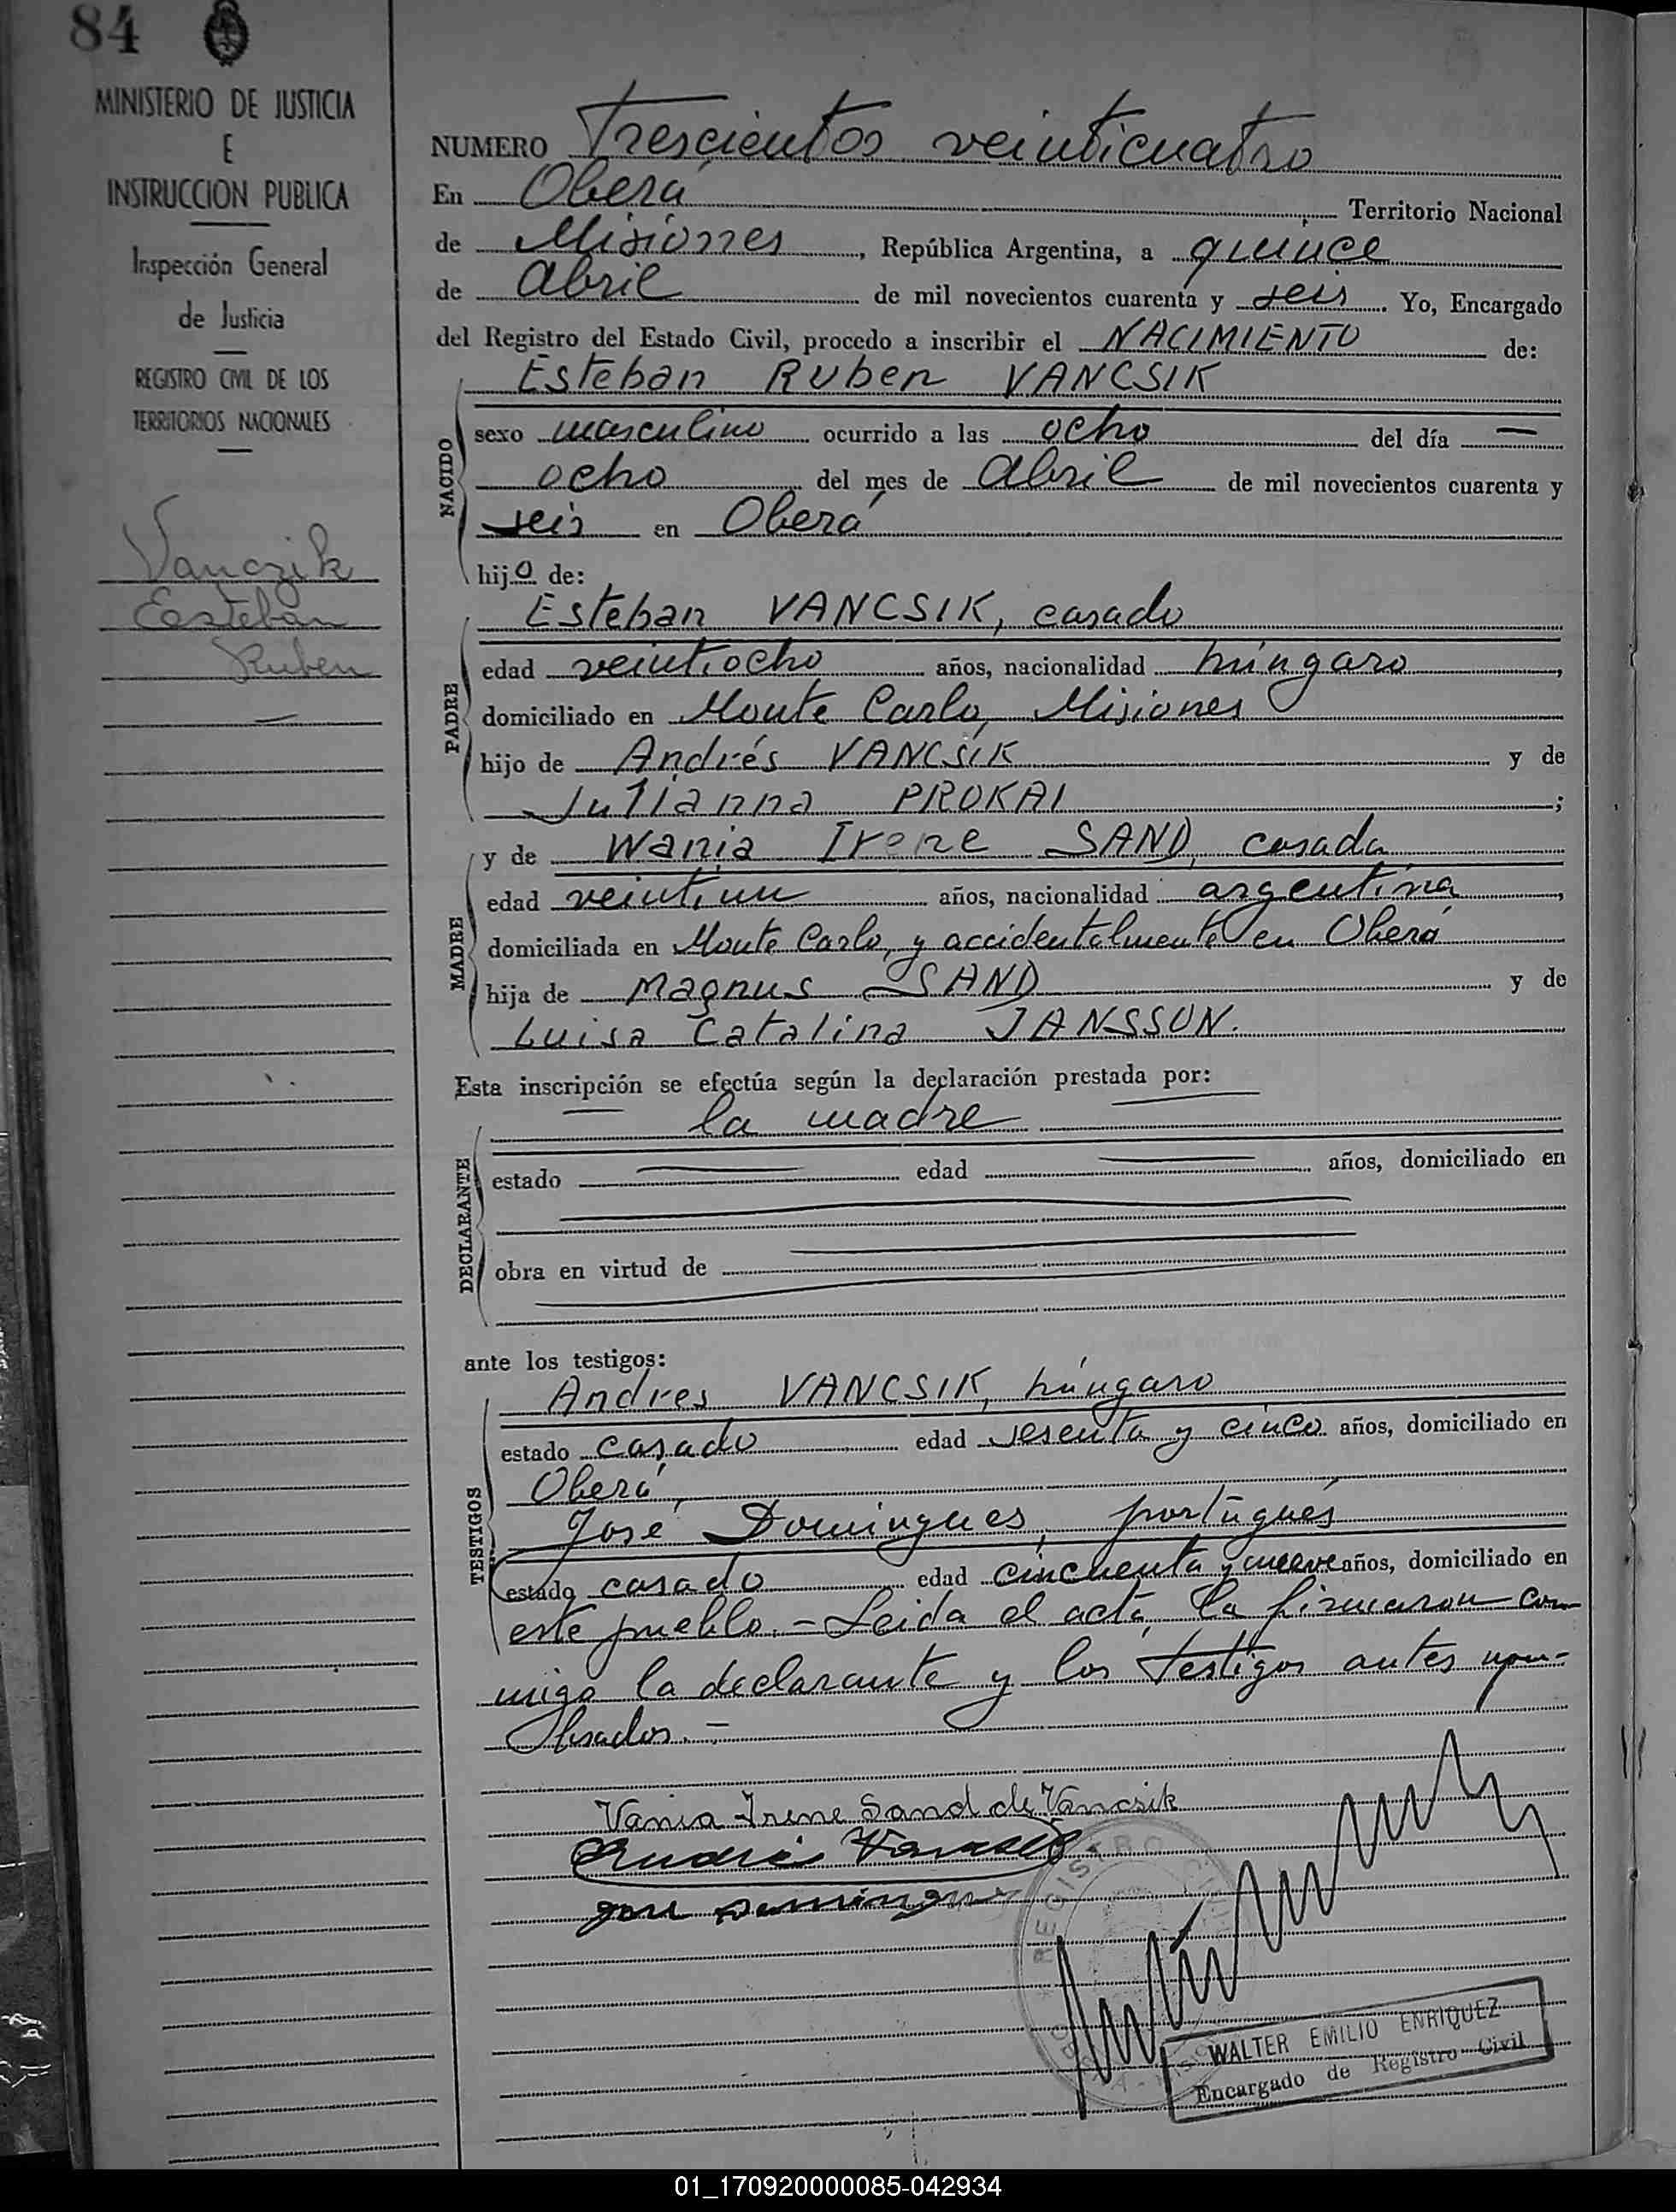 84
MINISTERIO DE JUSTICIA
E
INSTRUCCION PUBLICA
Inspección General
de Justicia
REGISTRO CIVIL DE LOS
TERRITORIOS NACIONALES
Vanczik
Eesteban
Ruben
NUMERO Trescientos veinticuatro
En Oberá Territorio Nacional
de Misiones, República Argentina, a quince
de abril de mil novecientos cuarenta y seis. Yo, Encargado
del Registro del Estado Civil, procedo a inscribir el NACIMIENTO de:
Esteban Ruben VANCSIK
NACIDO
sexo masculino ocurrido a las ocho del día —
ocho del mes de abril de mil novecientos cuarenta y
seis en Oberá
hijo de:
PADRE
Esteban VANCSIK, casado
edad veintiocho años, nacionalidad húngaro,
domiciliado en Monte Carlo, Misiones
hijo de Andrés VANCSIK y de
Julianna PROKAI;
MADRE
y de Wania Irene SAND, casada
edad veintiun años, nacionalidad argentina,
domiciliada en Monte Carlo, y accidentalmente en Oberá
hija de Magnus SAND y de
Luisa Catalina JANSSON.
Esta inscripción se efectúa según la declaración prestada por:
DECLARANTE
la madre
estado edad años, domiciliado en
obra en virtud de
ante los testigos:
TESTIGOS
Andres VANCSIK, húngaro
estado casado edad sesenta y cinco años, domiciliado en
Oberá,
José Domingues, portugués
estado casado edad cincuenta y nueve años, domiciliado en
este pueblo. - Leida el acta, la firmaron con-
migo la declarante y los testigos antes nom-
brados. -
Vania Irene Sand de Vancsik
REGISTRO CIVIL
WALTER EMILIO ENRIQUEZ
Encargado de Registro Civil
01_170920000085-042934